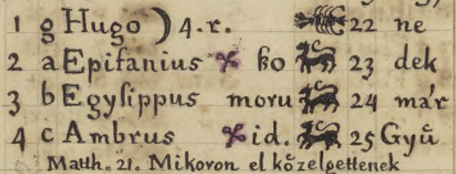 1 g Hugo ) 4. r. 22 ne
2 a Epifanius ko 23 dek
3 b Egyſippus moru 24 már
4 c Ambrus id. 25 Gyů
Matth. 21. Mikoron el kőzelgettenek